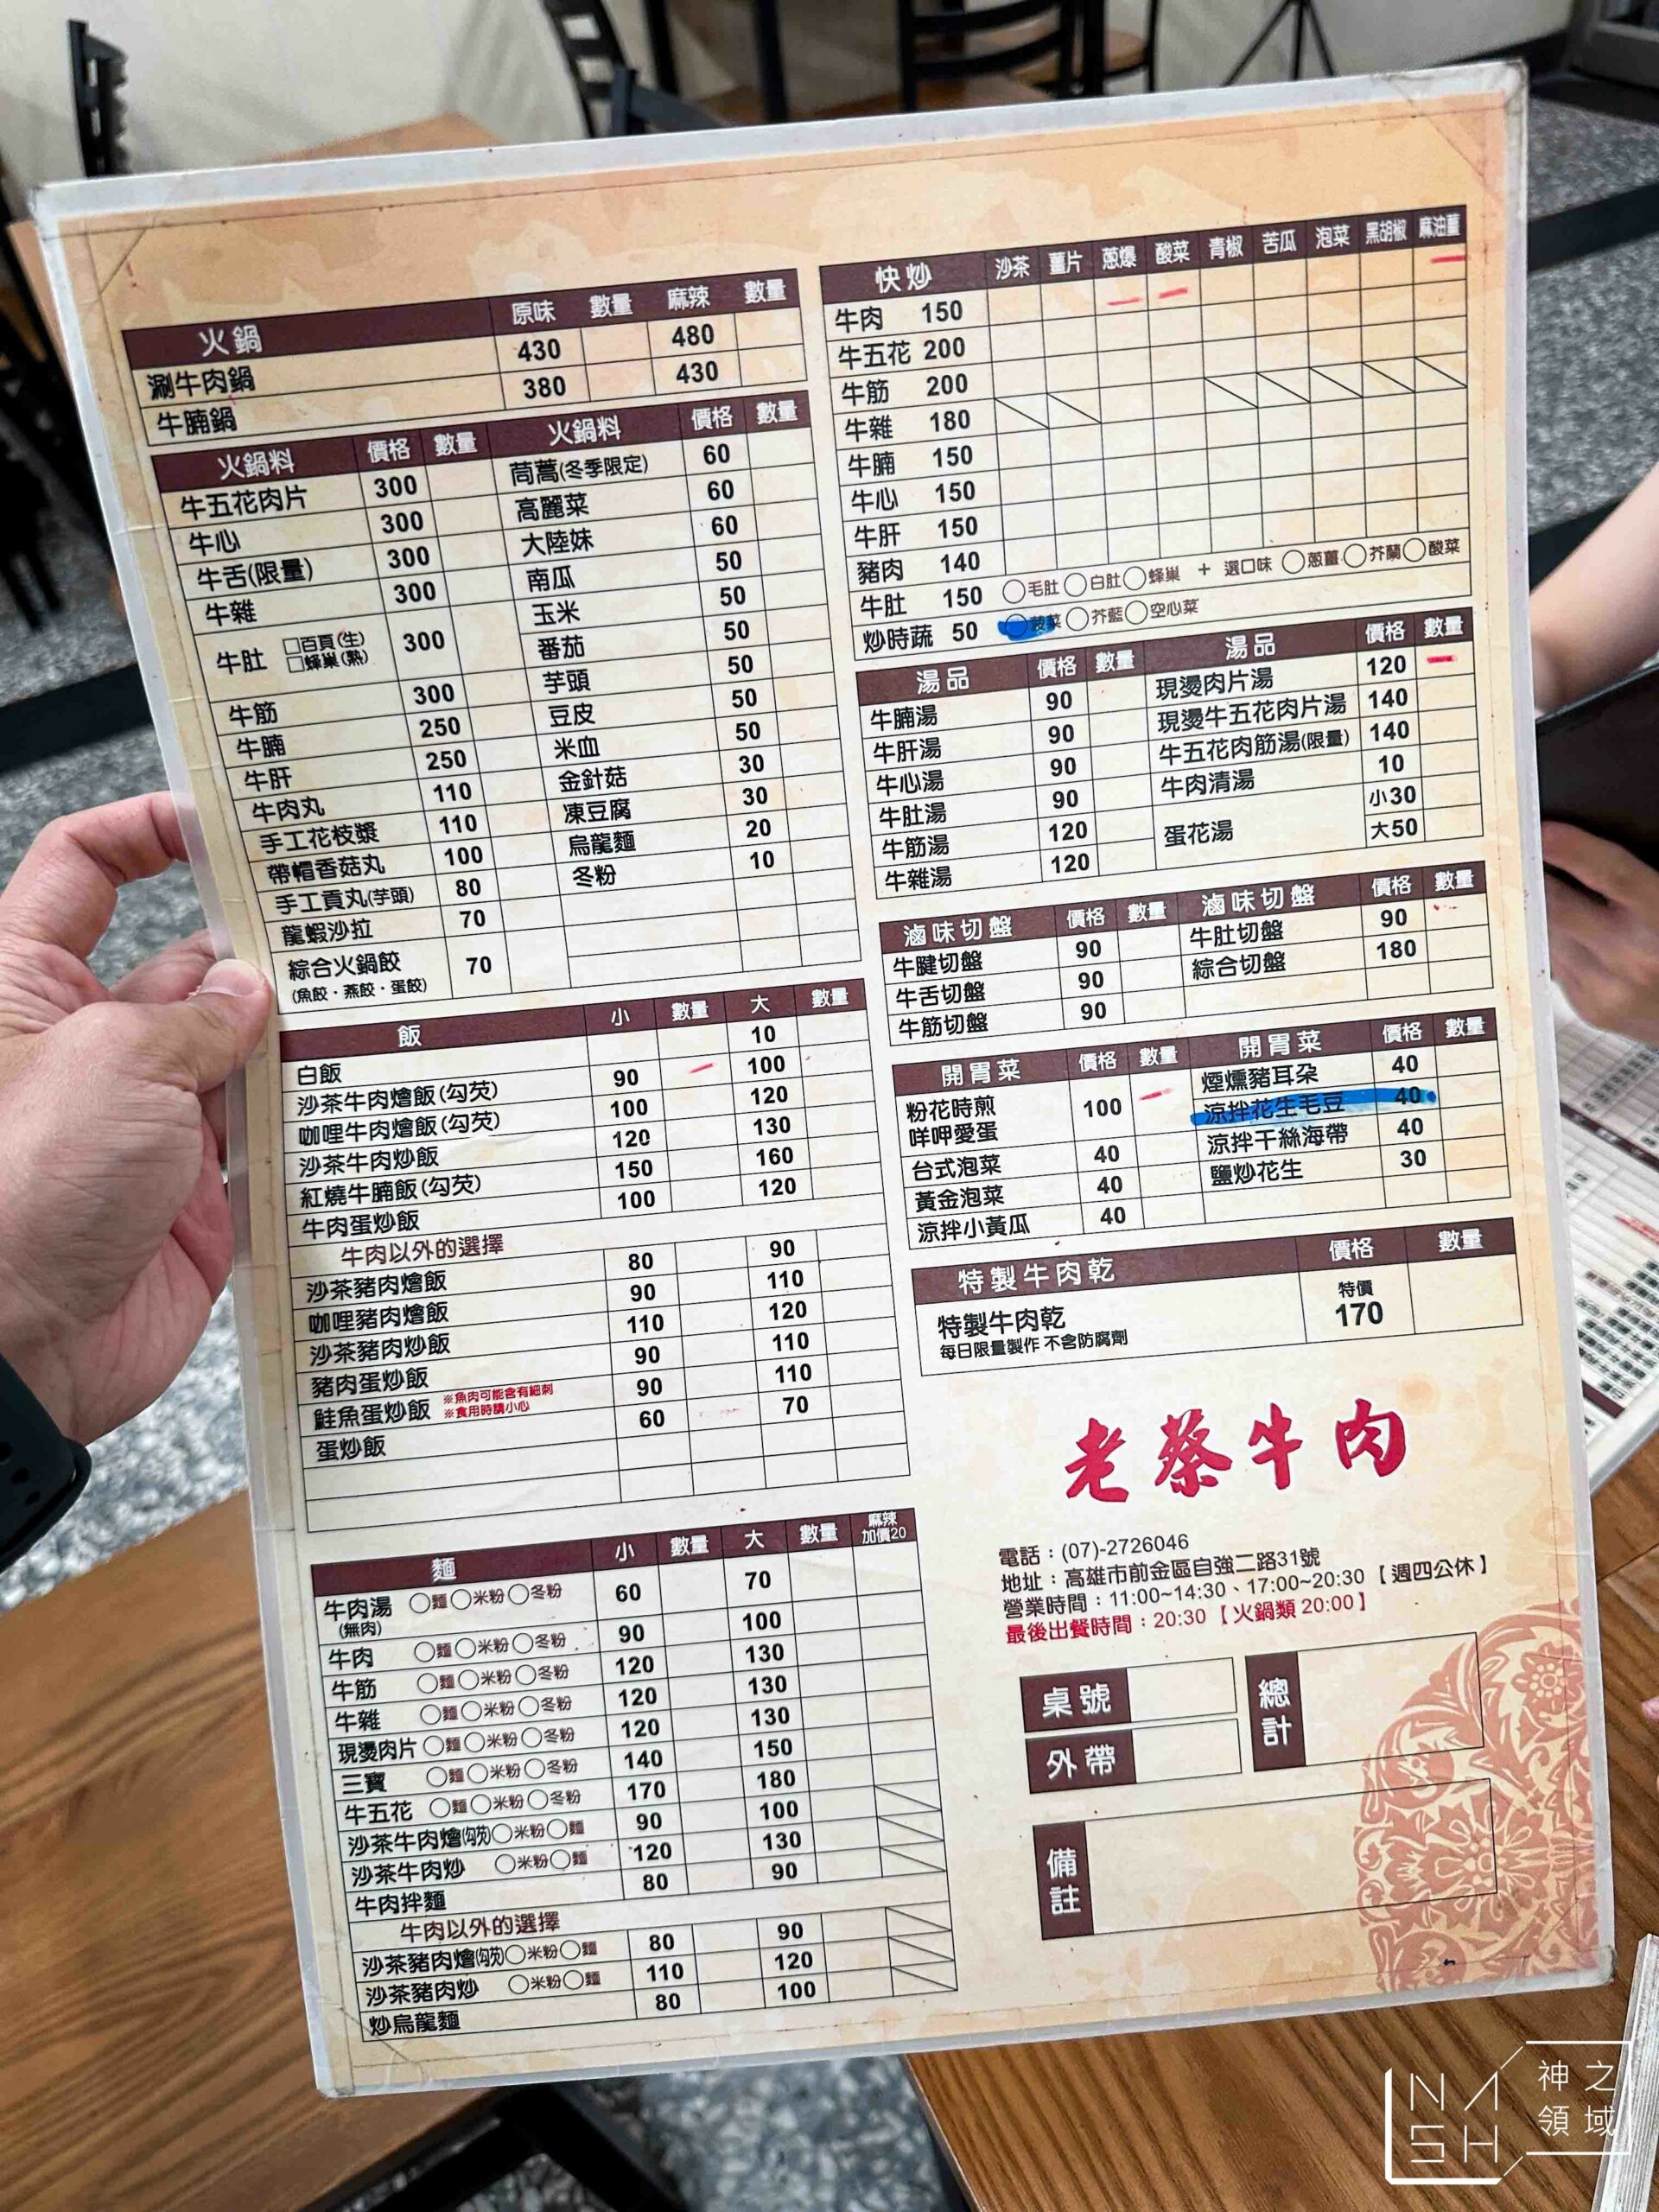 火鍋 原味 數量 麻辣 數量
涮牛肉鍋 430 480
牛腩鍋 380 430
火鍋料 價格 數量 火鍋料 價格 數量
牛五花肉片 300 茼蒿(冬季限定) 60
牛心 300 高麗菜 60
牛舌(限量) 300 大陸妹 60
牛雜 300 南瓜 50
牛肚 □百頁(生) □蜂巢(熟) 300 玉米 50
番茄 50
牛筋 300 芋頭 50
牛腩 250 豆皮 50
牛肝 250 米血 50
牛肉丸 110 金針菇 30
手工花枝漿 110 凍豆腐 30
帶帽香菇丸 100 烏龍麵 20
手工貢丸(芋頭) 80 冬粉 10
龍蝦沙拉 70
綜合火鍋餃 70
(魚餃・燕餃・蛋餃)
飯 小 數量 大 數量
白飯 10
沙茶牛肉燴飯(勾芡) 90 100
咖哩牛肉燴飯(勾芡) 100 120
沙茶牛肉炒飯 120 130
紅燒牛腩飯(勾芡) 150 160
牛肉蛋炒飯 100 120
牛肉以外的選擇
沙茶豬肉燴飯 80 90
咖哩豬肉燴飯 90 110
沙茶豬肉炒飯 110 120
豬肉蛋炒飯 90 110
鮭魚蛋炒飯 ※魚肉可能含有細刺 ※食用時請小心 90 110
蛋炒飯 60 70
麵 小 數量 大 數量 麻辣加價20
牛肉湯 ○麵○米粉○冬粉 60 70
(無肉)
牛肉 ○麵○米粉○冬粉 90 100
牛筋 ○麵○米粉○冬粉 120 130
牛雜 ○麵○米粉○冬粉 120 130
現燙肉片 ○麵○米粉○冬粉 120 130
三寶 ○麵○米粉○冬粉 140 150
牛五花 ○麵○米粉○冬粉 170 180
沙茶牛肉燴(勾芡)○米粉○麵 90 100
沙茶牛肉炒 ○米粉○麵 120 130
牛肉拌麵 80 90
牛肉以外的選擇
沙茶豬肉燴(勾芡)○米粉○麵 80 90
沙茶豬肉炒 ○米粉○麵 110 120
炒烏龍麵 80 100
快炒 沙茶 薑片 蔥爆 酸菜 青椒 苦瓜 泡菜 黑胡椒 麻油薑
牛肉 150
牛五花 200
牛筋 200
牛雜 180
牛腩 150
牛心 150
牛肝 150
豬肉 140
牛肚 150 ○毛肚○白肚○蜂巢 + 選口味 ○蔥薑○芥蘭○酸菜
炒時蔬 50 ○菠菜○芥藍○空心菜
湯品 價格 數量 湯品 價格 數量
牛腩湯 90 現燙肉片湯 120
牛肝湯 90 現燙牛五花肉片湯 140
牛心湯 90 牛五花肉筋湯(限量) 140
牛肚湯 90 牛肉清湯 10
牛筋湯 120 蛋花湯 小30
牛雜湯 120 大50
滷味切盤 價格 數量 滷味切盤 價格 數量
牛腱切盤 90 牛肚切盤 90
牛舌切盤 90 綜合切盤 180
牛筋切盤 90
開胃菜 價格 數量 開胃菜 價格 數量
粉花時煎 100 煙燻豬耳朵 40
咩呷愛蛋 涼拌花生毛豆 40
台式泡菜 40 涼拌干絲海帶 40
黃金泡菜 40 鹽炒花生 30
涼拌小黃瓜 40
特製牛肉乾 價格 數量
特製牛肉乾 特價
每日限量製作 不含防腐劑 170
老蔡牛肉
電話：(07)-2726046
地址：高雄市前金區自強二路31號
營業時間：11:00~14:30、17:00~20:30【週四公休】
最後出餐時間：20:30【火鍋類 20:00】
桌號 總計
外帶
備註
NASH 神之領域